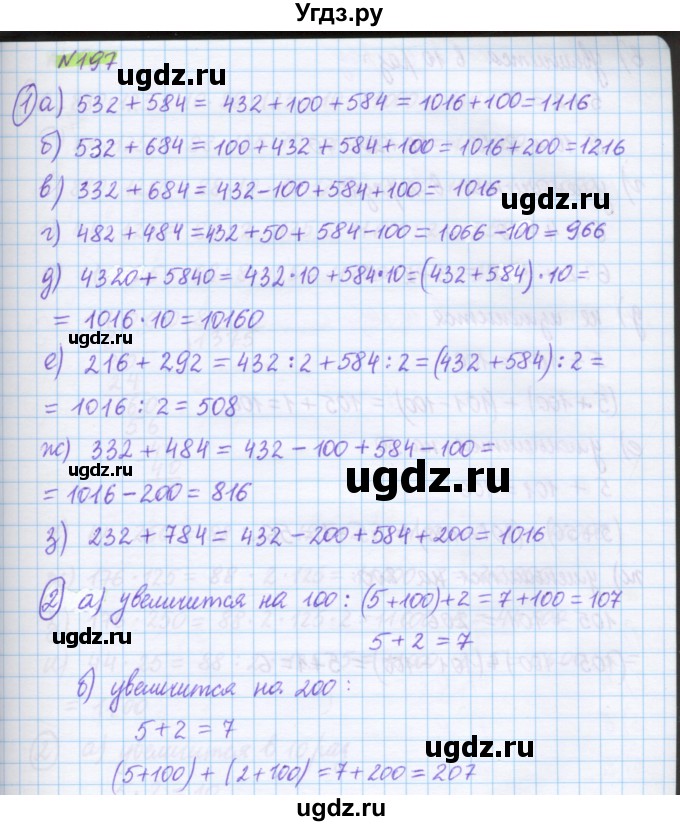 Угдз.ру
№197
1) а) 532 + 584 = 432 + 100 + 584 = 1016 + 100 = 1116
б) 532 + 684 = 100 + 432 + 584 + 100 = 1016 + 200 = 1216
в) 332 + 684 = 432 - 100 + 584 + 100 = 1016
ugdz.ru
г) 482 + 484 = 432 + 50 + 584 - 100 = 1066 - 100 = 966
д) 4320 + 5840 = 432 · 10 + 584 · 10 = (432 + 584) · 10 =
= 1016 · 10 = 10160
ugdz.ru
е) 216 + 292 = 432 : 2 + 584 : 2 = (432 + 584) : 2 =
= 1016 : 2 = 508
ж) 332 + 484 = 432 - 100 + 584 - 100 =
ugdz.ru
= 1016 - 200 = 816
з) 232 + 784 = 432 - 200 + 584 + 200 = 1016
2) а) увеличится на 100 : (5 + 100) + 2 = 7 + 100 = 107
ugdz.ru
5 + 2 = 7
б) увеличится на 200 :
5 + 2 = 7
ugdz.ru
(5 + 100) + (2 + 100) = 7 + 200 = 207
ugdz.ru
ugdz.ru